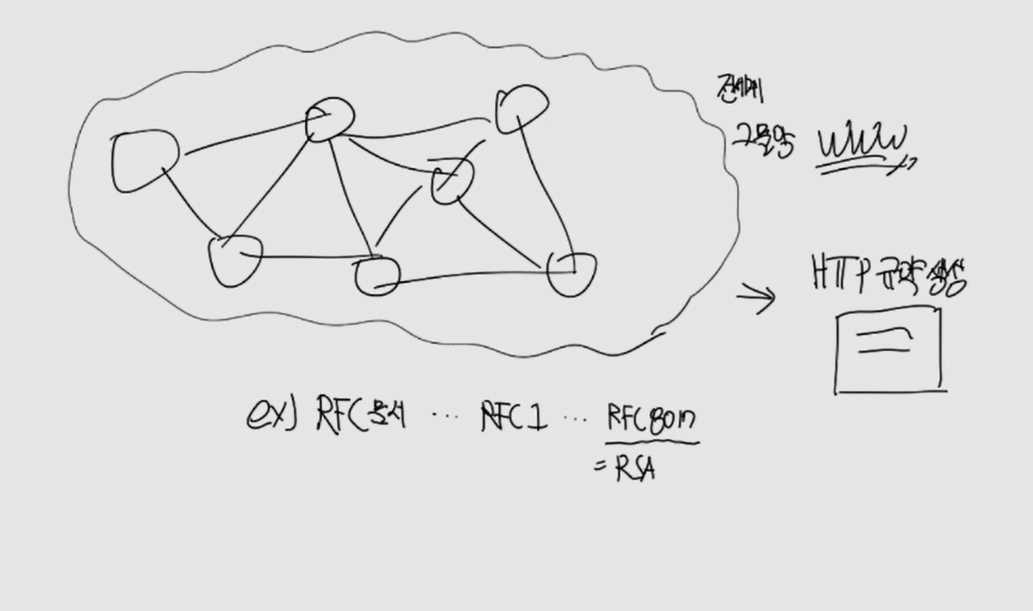 전세계
그물망 WWW
HTTP 규약 생성
ex) RFC 문서 ... RFC 1 ... RFC 8017
= RSA